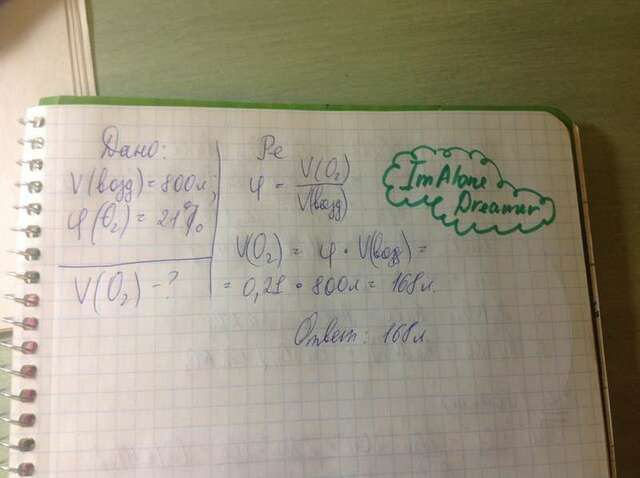 Дано:
V(возд)=800л;
φ(O₂)=21%
V(O₂)-?
Ре
φ = V(O₂)/V(возд)
V(O₂) = φ • V(воз) =
= 0,21 • 800л = 168л.
Ответ: 168л.
ImAlone
Dreamer